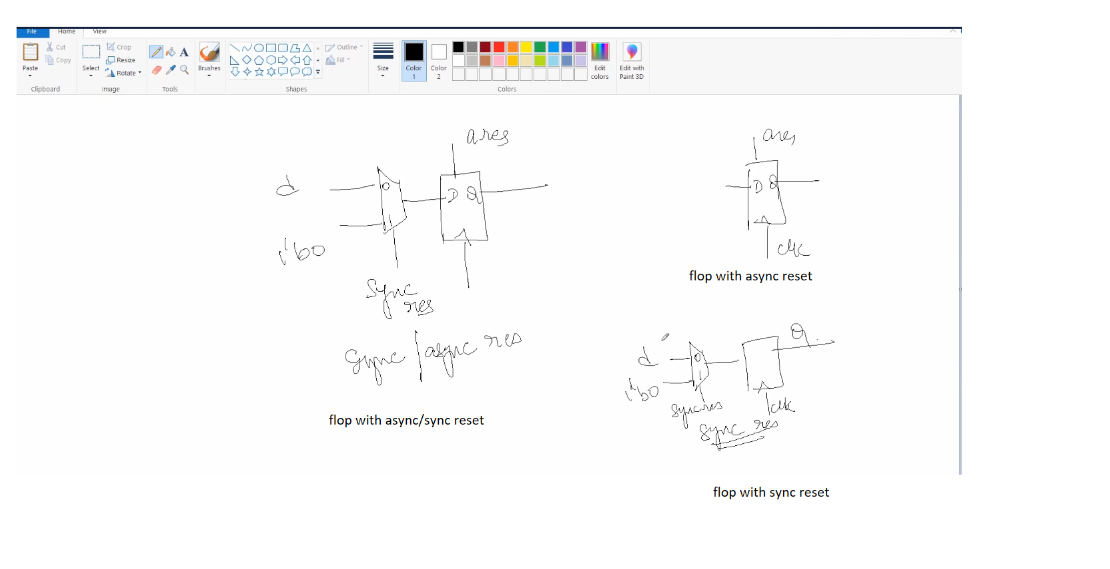 File Home View
Cut
Copy
Paste
Clipboard
Select
Crop
Resize
Rotate
Image
A
Tools
Brushes
Outline
Fill
Shapes
Size
Color 1
Color 2
Edit colors
Edit with Paint 3D
Colors
ares
d
0
D Q
1
1'b0
sync
res
sync/async res
flop with async/sync reset
ares
D Q
clk
flop with async reset
Q
d
0
1'b0
1
syncres
clk
sync res
flop with sync reset